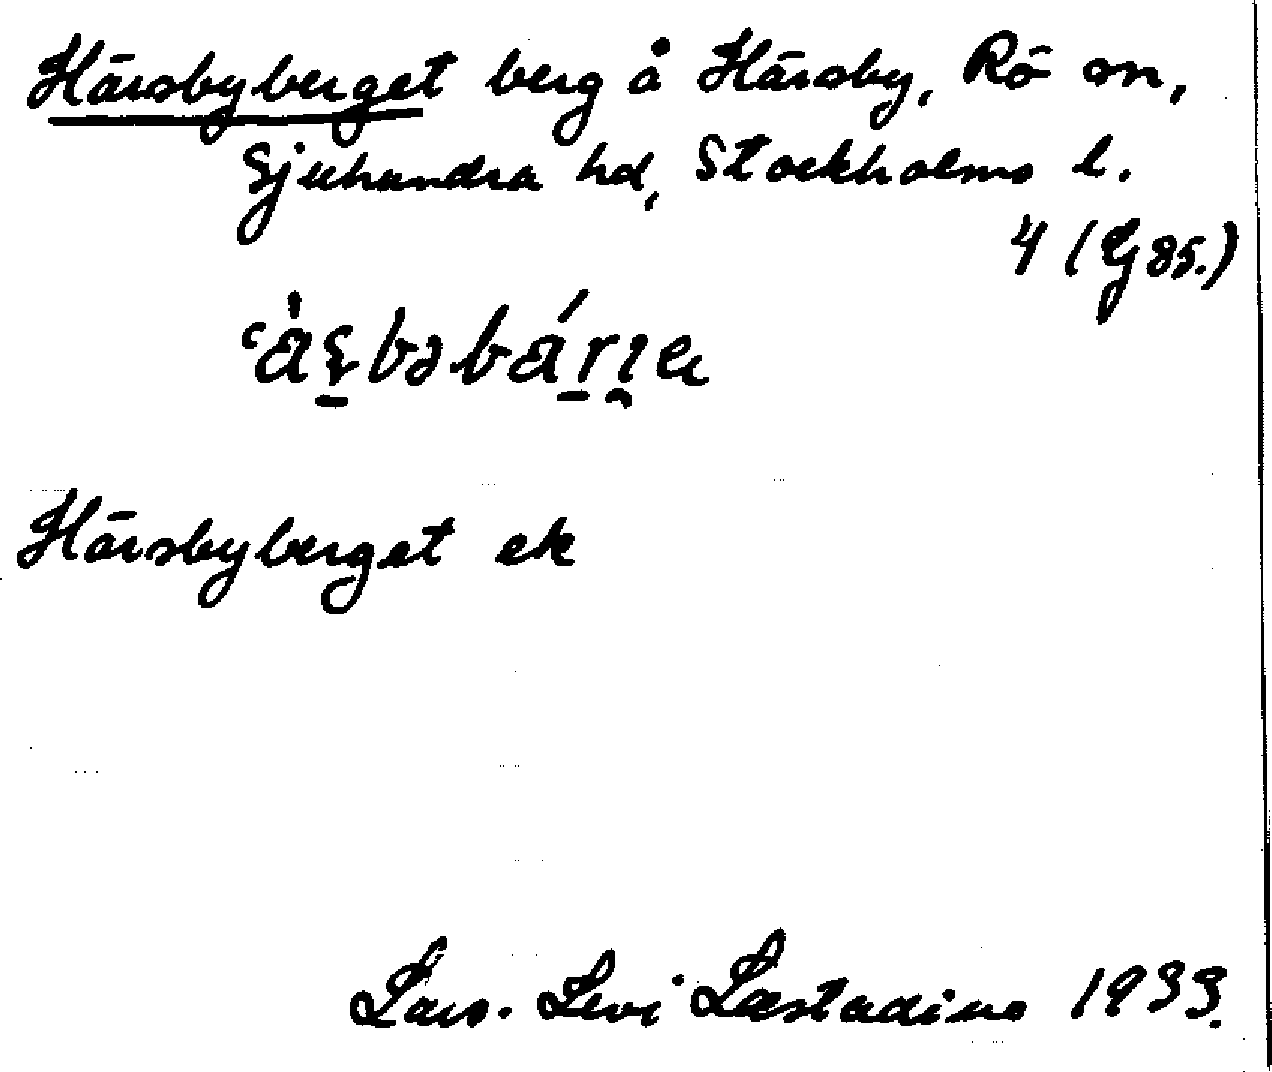 Härsbyberget berg å Härsby, Rö sn,
Sjuhundra hd, Stockholms l.
4 (G 85.)
Härsbyberget ek
Lars-Levi Læstadius 1933.